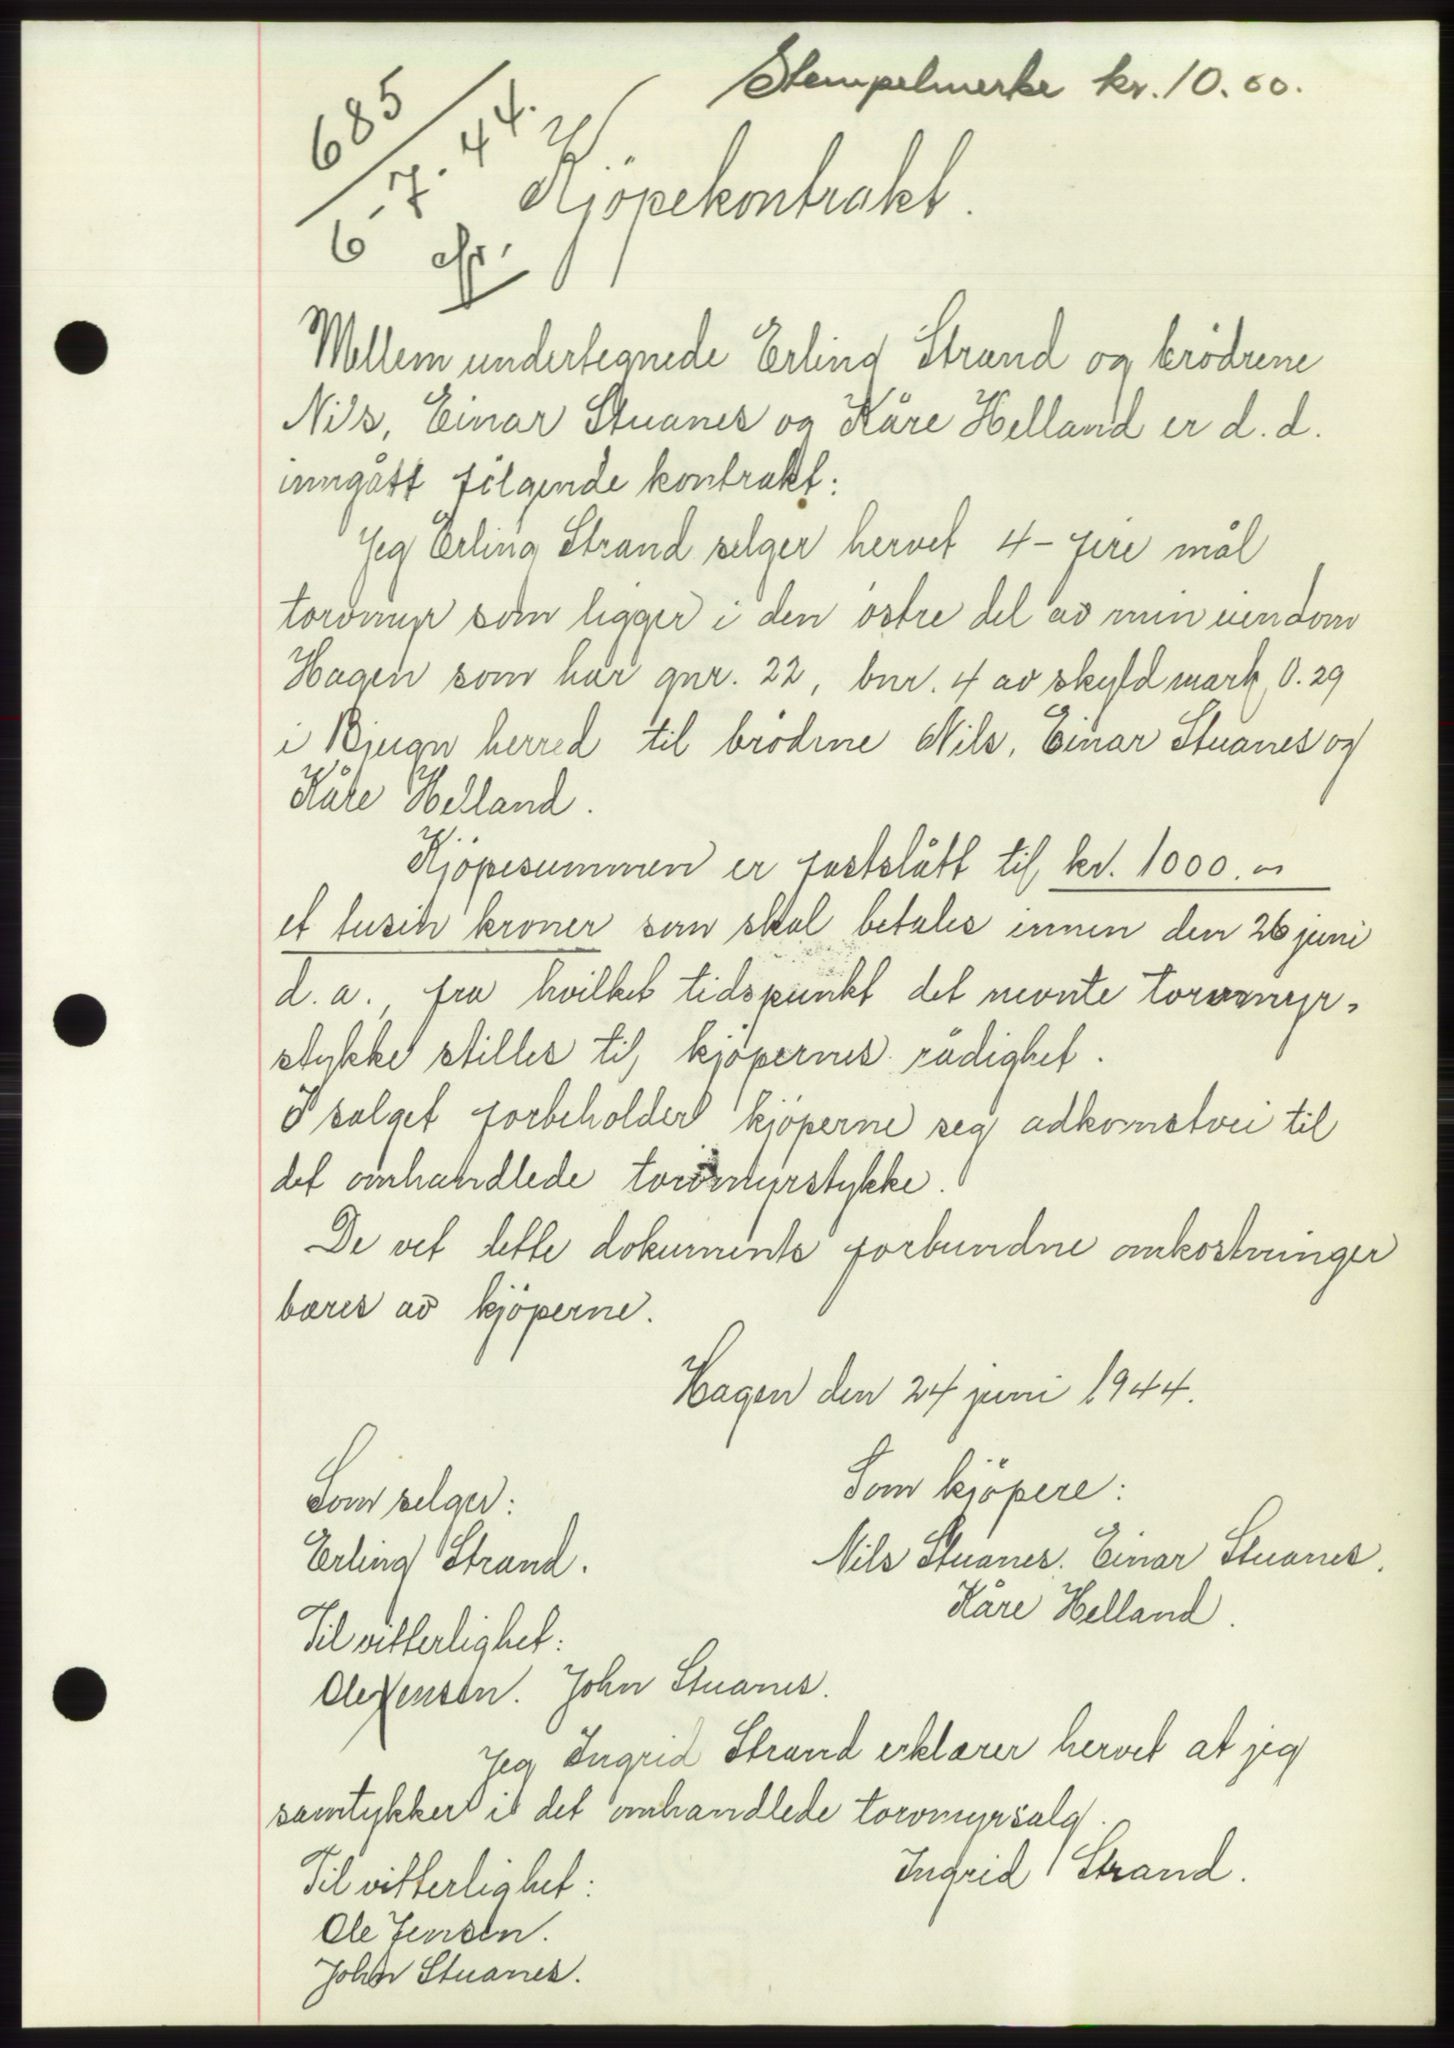 Stempelmerke kr. 10.00.
685
6-7.44.
Kjöpekontrakt.
Mellem undertegnede Erling Strand og brödrene
Nils, Einar Stuanes og Kåre Helland er d.d.
inngått fölgende kontrakt:
Jeg Erling Strand selger hervet 4 - fire mål
torvmyr som ligger i den östre del av min eiendom
Hagen som har gnr. 22, bnr. 4 av skyld mark 0.29
i Bjugn herred til brödrne Nils, Einar Stuanes og
Kåre Helland.
Kjöpesummen er fastslått til kr. 1000.00
et tusin kroner som skal betales innen den 26 juni
d.a., fra hvilket tidspunkt det nevnte torvmyr-
stykke stilles til kjöpernes rådighet.
I salget forbeholder kjöperne seg adkomstvei til
det omhandlede torvmyrstykke.
De vet dette dokuments forbundne omkostninger
bæres av kjöperne.
Hagen den 24 juni 1944.
Som selger:
Som kjöpere:
Erling Strand.
Nils Stuanes. Einar Stuanes.
Kåre Helland.
Til vitterlighet:
Ole Jensen. John Stuanes.
Jeg Ingrid Strand erklærer hervet at jeg
samtykker i det omhandlede torvmyrsalg.
Ingrid Strand.
Til vitterlighet:
Ole Jensen.
John Stuanes.